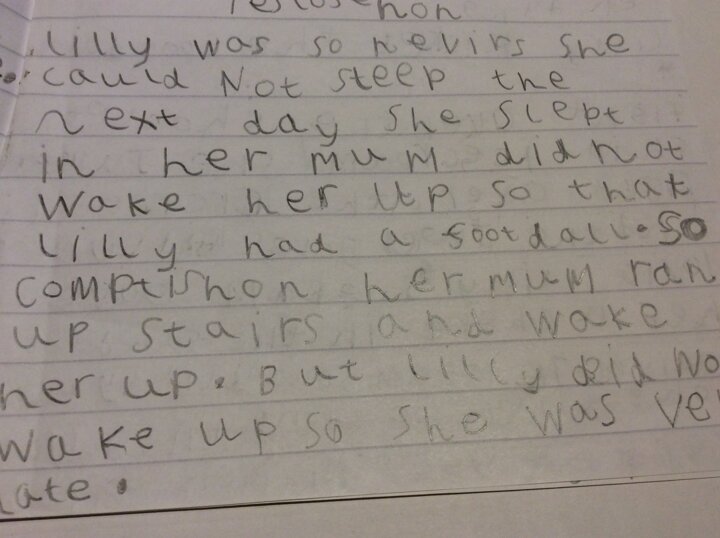 lilly was so nevirs she
could Not sleep the
next day she slept
in her mum did not
wake her up so that
Lilly had a footdall. so
comptishon her mum ran
up stairs and wake
her up. But lilly did
wake up so she was
late.